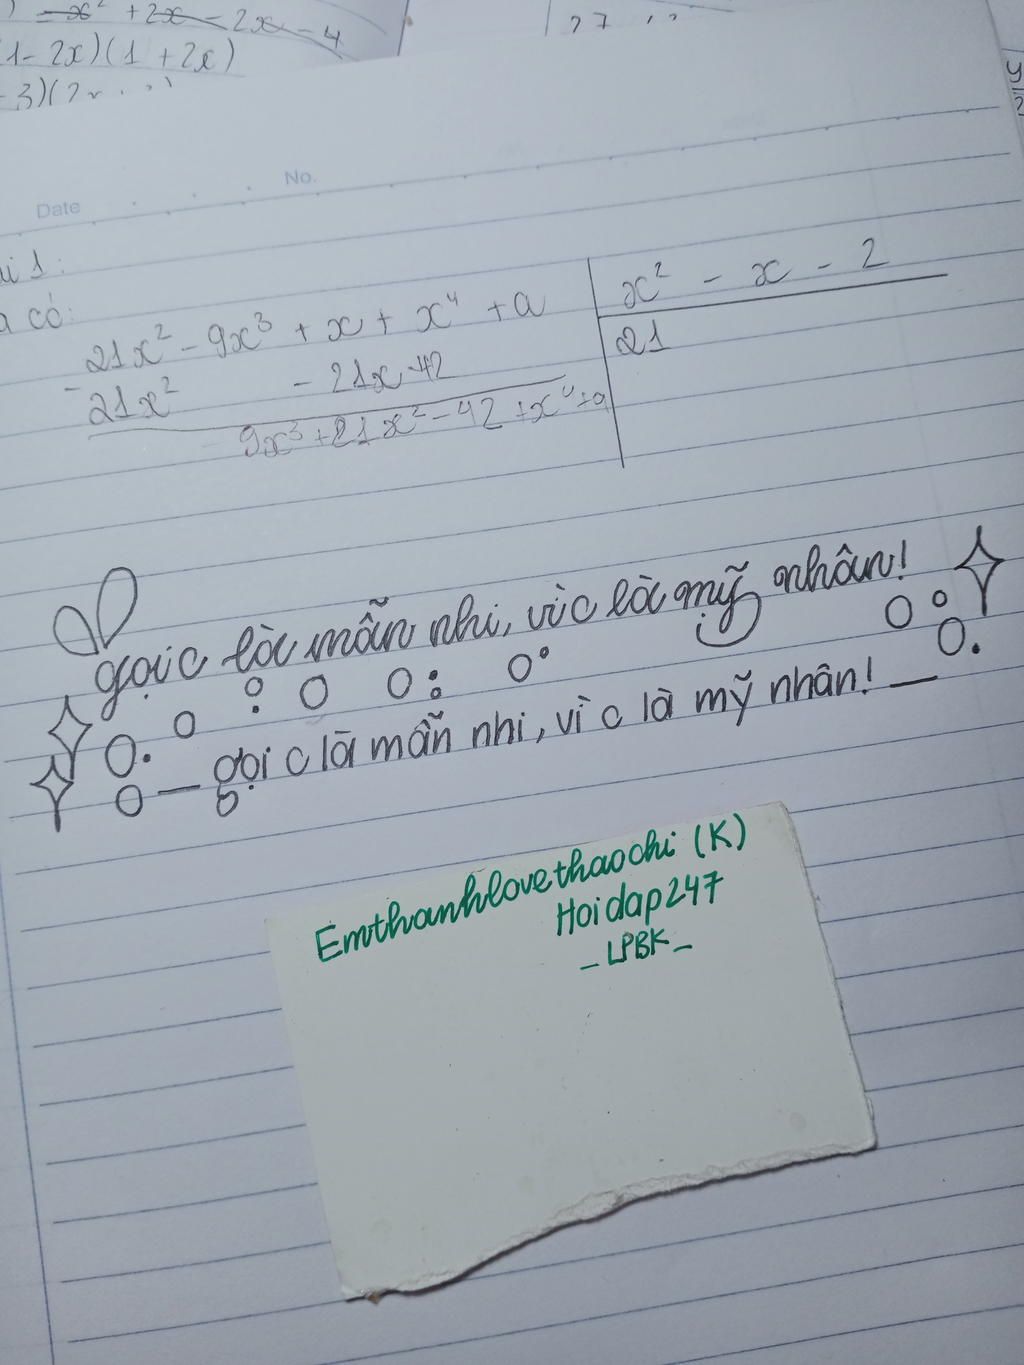 = x² + 2x - 2x - 4
(1 - 2x)(1 + 2x)
3)(2x
Date
No.
1:
có:
21x² - 9x³ + x + x⁴ + a
x² - x - 2
21
- 21x² - 21x - 42
- 9x³ + 21x² - 42 + x⁴ + a
gọi c là mẫn nhi, vì c là mỹ nhân!
— gọi c là mẫn nhi, vì c là mỹ nhân! —
Emthanhlovethaochi (K)
Hoidap247
_ LPBK _